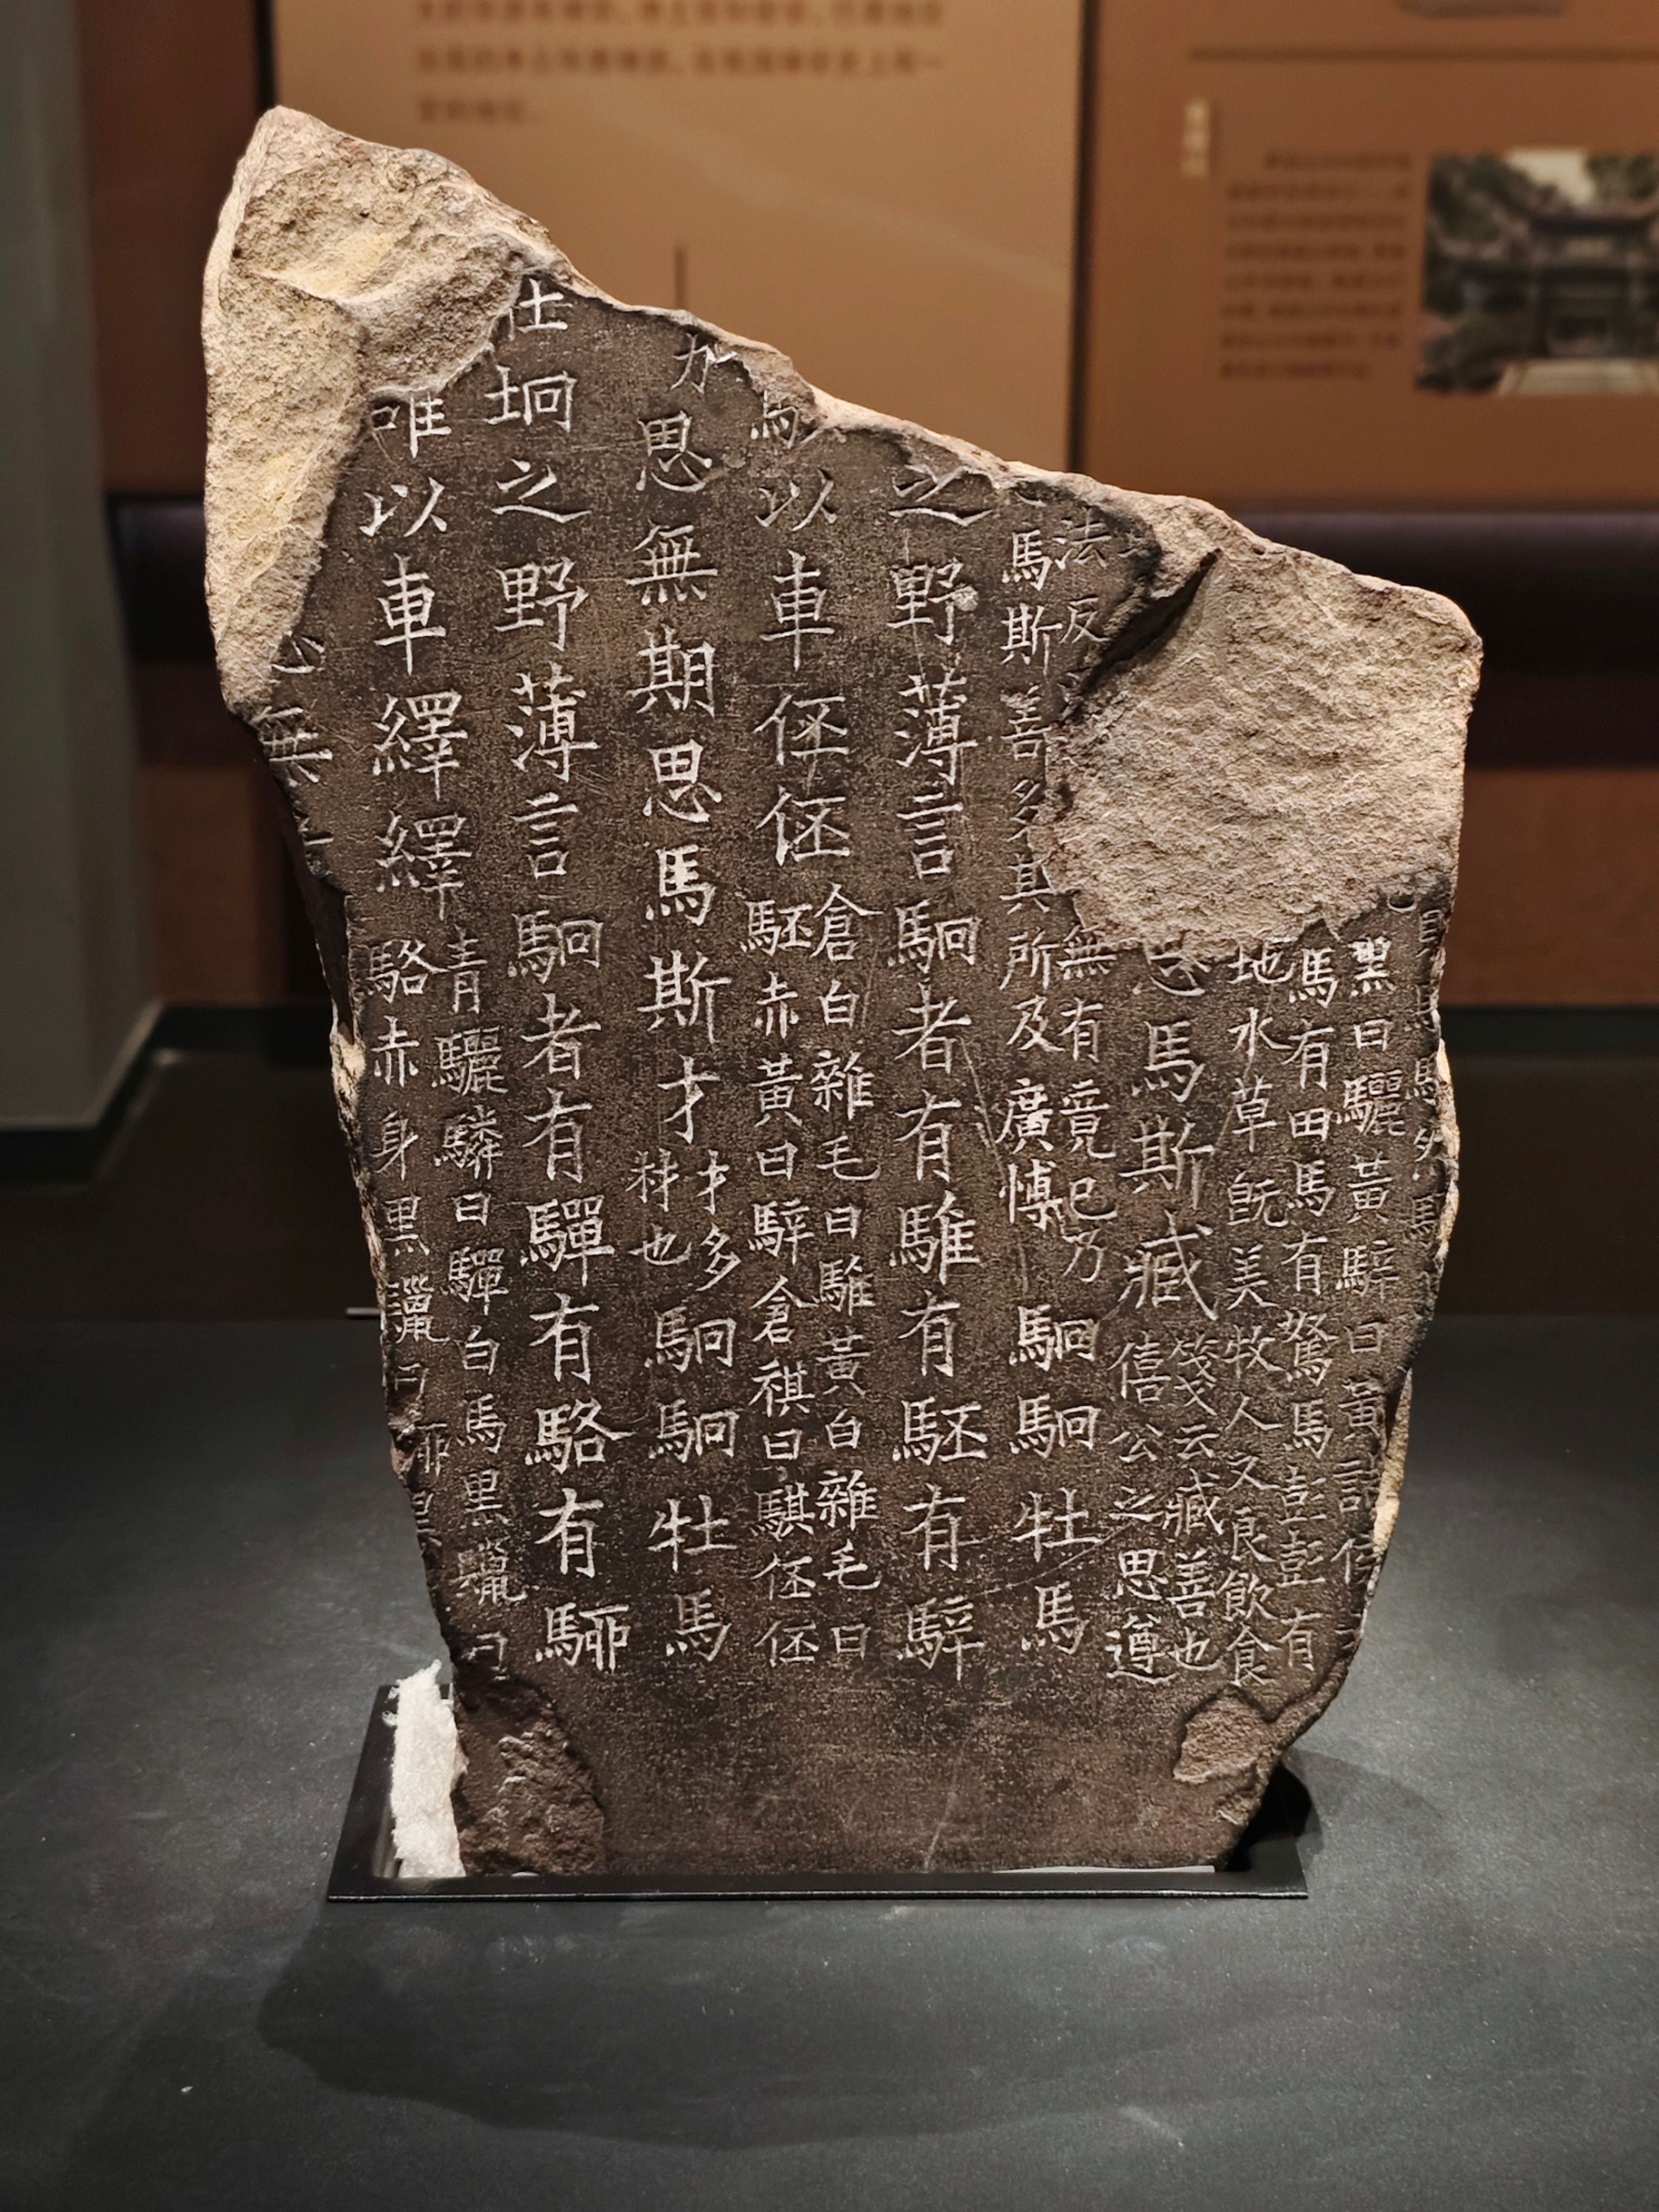 黑曰驪黃騂曰黃諸侯
馬有田馬有駑馬彭彭有
地水草既美牧人又良飲食
思馬斯臧
箋云臧善也
僖公之思遵
法反
無有竟已乃
馬斯善多其所及廣博
駉駉牡馬
之野薄言駉者有騅有駓有騂
以車伾伾
倉白雜毛曰騅黃白雜毛曰
駓赤黃曰騂倉祺曰騏伾伾
力思無期思馬斯才
才多
材也
駉駉牡馬
在坰之野薄言駉者有驒有駱有駵
唯以車繹繹
青驪驎曰驒白馬黑鬣曰
駱赤身黑鬣曰駵黑
無